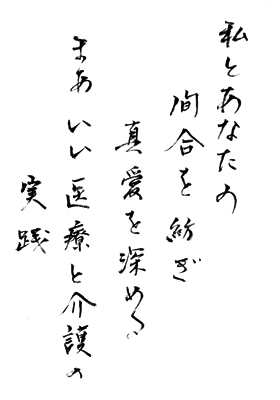 私とあなたの
間合を紡ぎ
真愛を深める
まあいい医療と介護の
実践